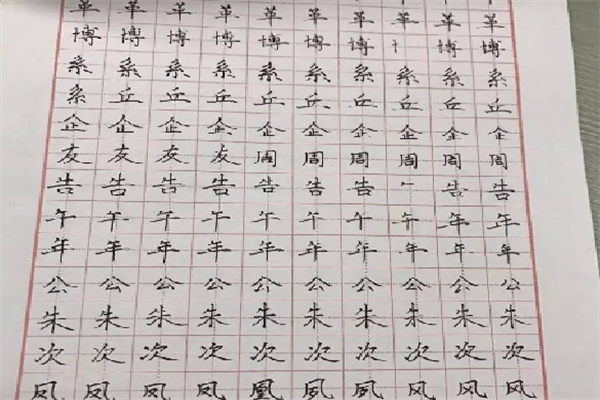 革革革革革革革革革革
博博博博博博博博博
系系系系系系系系系系
系丘丘丘丘丘丘丘丘丘
企企企企企企企企企企
友友友友周周周周周周
告告告告告告告告告
午午午午午午午午年年
年年年年年年年年年年
公公公公公公公公公公
朱朱朱朱朱朱朱朱朱朱
次次次次次次次次次次
凤凤凤凤凰夙夙风风风